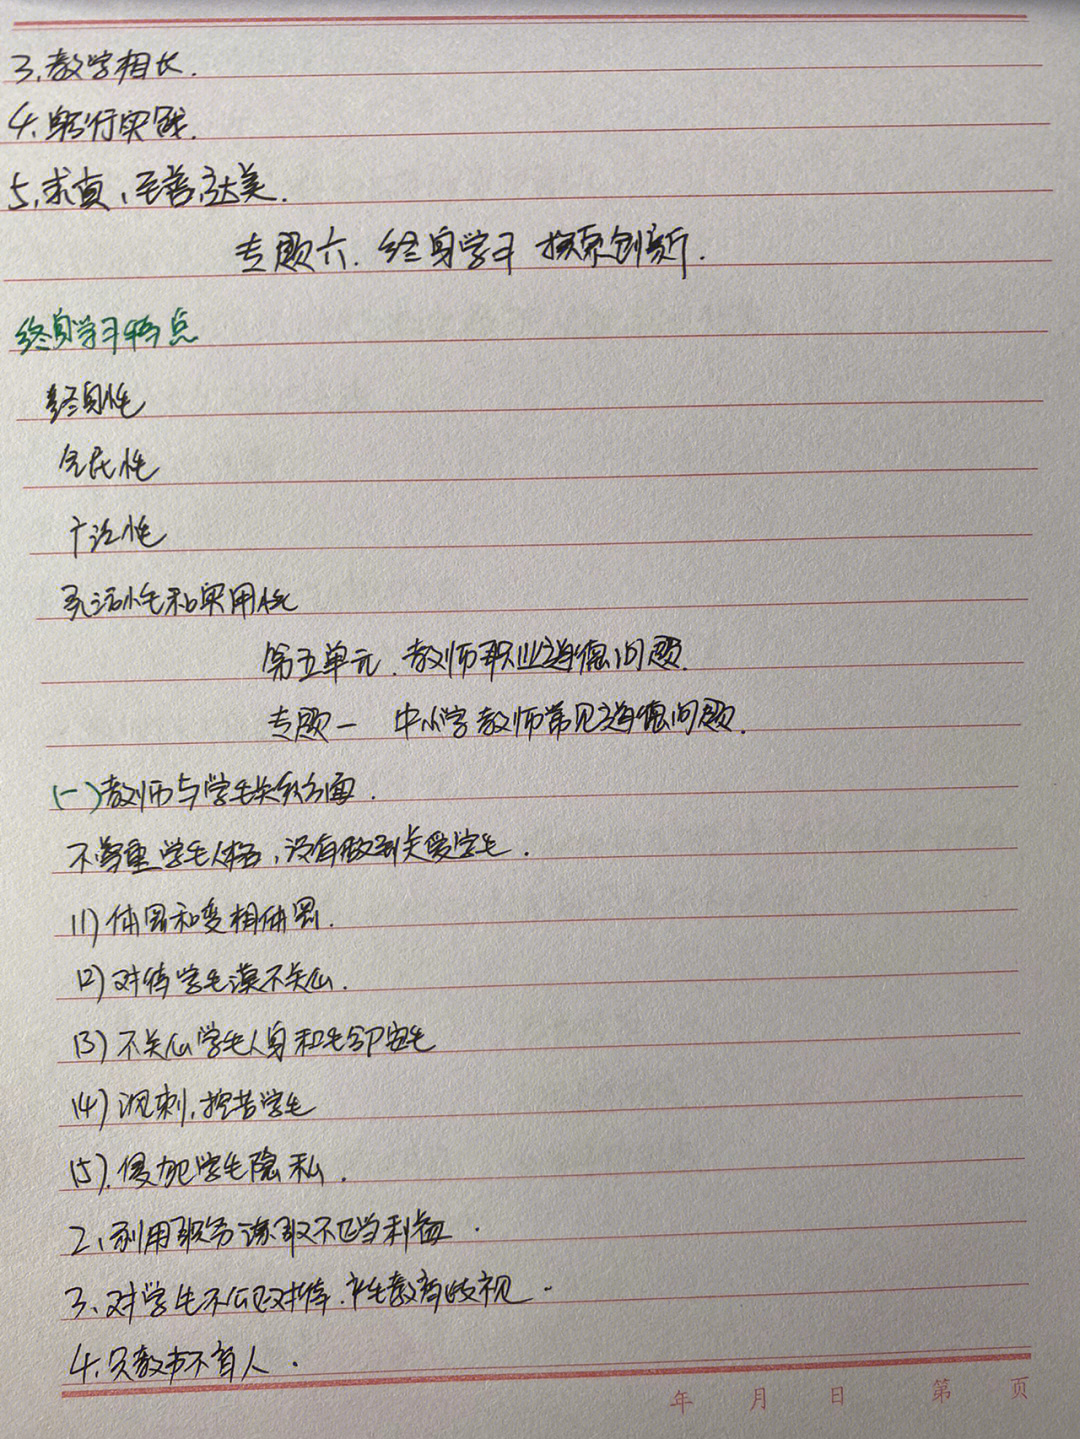 3.教学相长.
4.躬行实践.
5.求真、至善、达美.
专题六. 终身学习 探索创新.
终身学习特点
终身性
全民性
广泛性
灵活性和实用性
第五单元.教师职业道德问题.
专题一 中小学教师常见道德问题.
(一)教师与学生关系方面.
不尊重学生人格,没有做到关爱学生.
(1)体罚和变相体罚.
(2)对待学生漠不关心.
(3)不关心学生人身和生命安全
(4)讽刺,挖苦学生
(5).侵犯学生隐私.
2、利用职务谋取不正当利益.
3、对学生不公正对待.教育歧视.
4.只教书不育人.
年 月 日 第 页